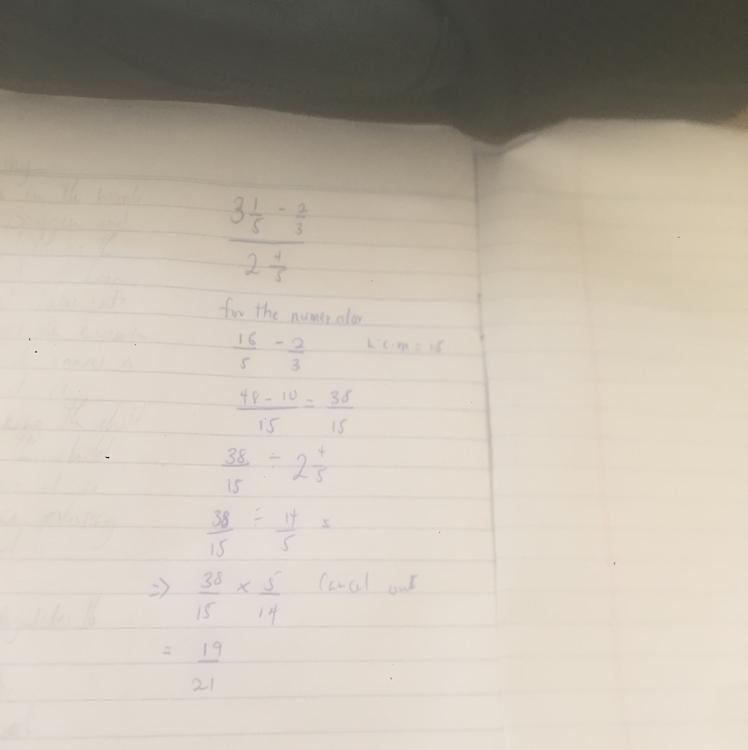 3 1/5 - 2/3
2 4/5
for the numerator
16/5 - 2/3 L.c.m = 15
48 - 10/15 = 38/15
38/15 ÷ 2 4/5
38/15 ÷ 14/5
=> 38/15 × 5/14 Cancel out
= 19/21